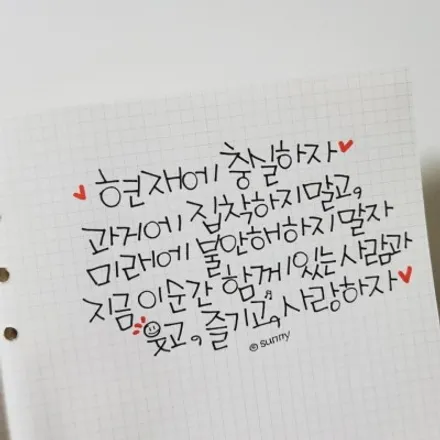 현재에 충실하자
과거에 집착하지말고,
미래에 불안해하지 말자
지금 이순간 함께 있는 사람과
웃고, 즐기고, 사랑하자
© sunny